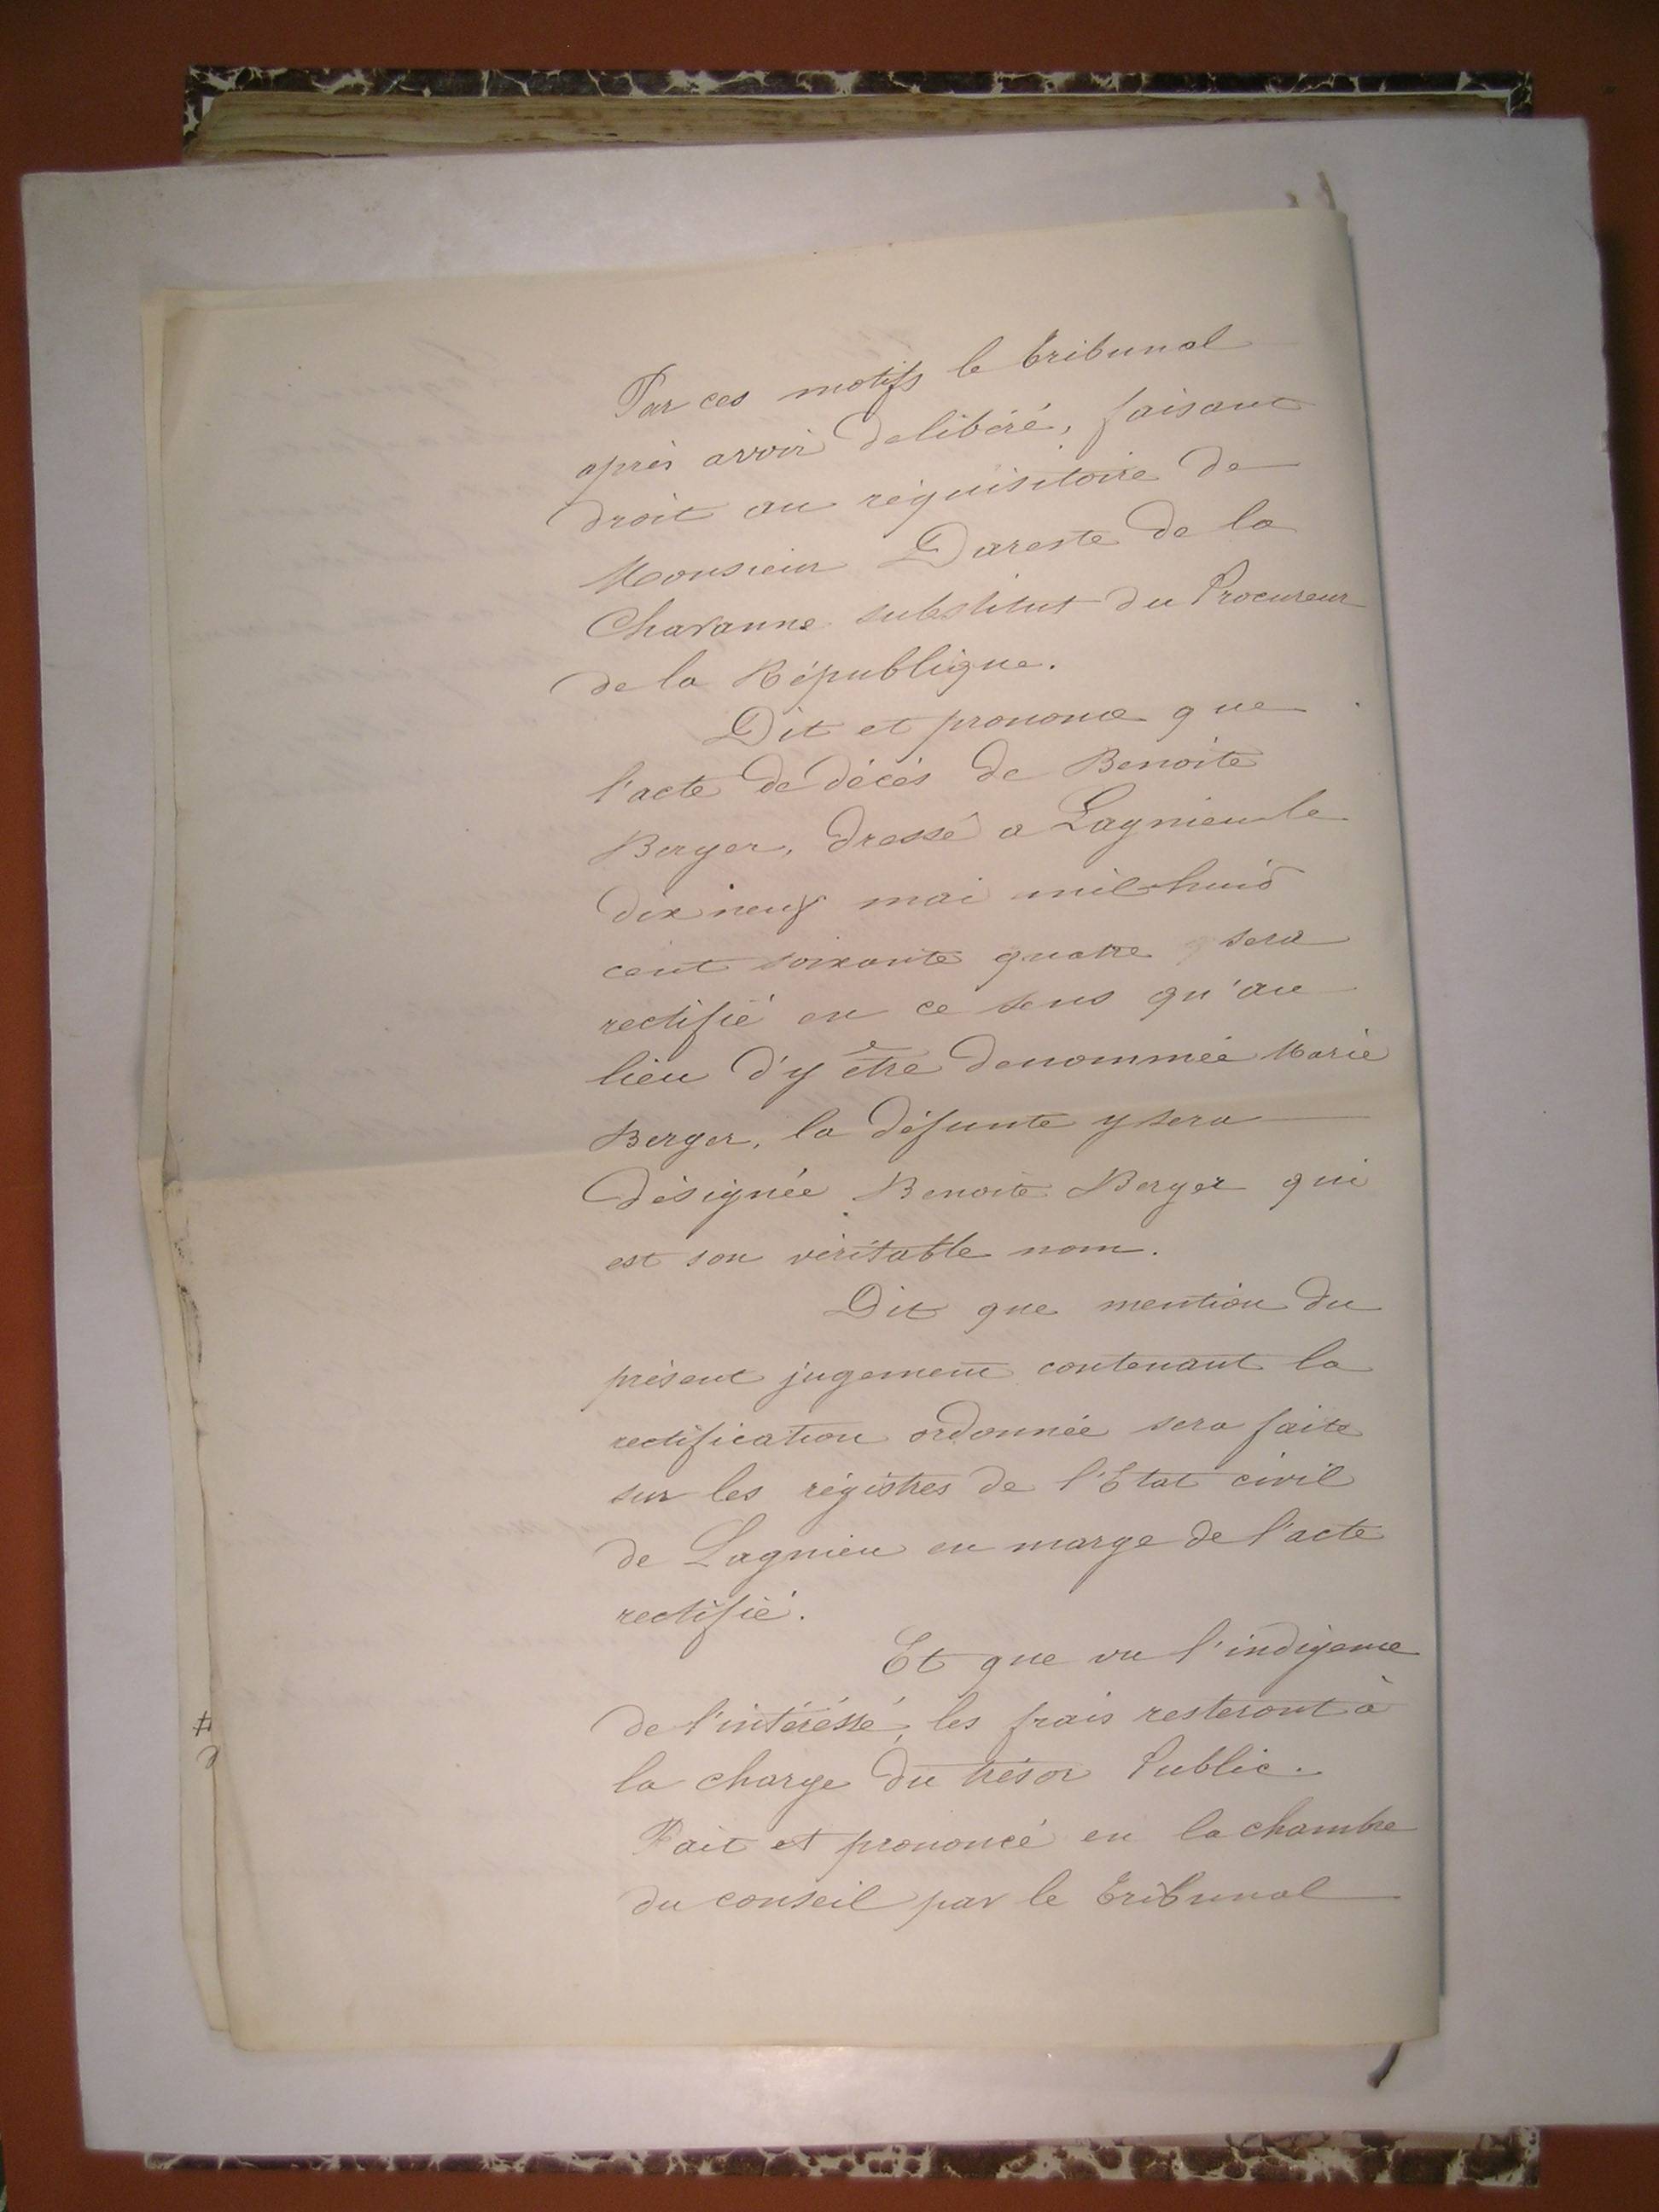 Par ces motifs le tribunal
après avoir delibéré, faisant
droit au réquisitoire de
Monsieur Dareste de la
Chavanne substitut du Procureur
de la République.
Dit et prononce que
l'acte de décès de Benoite
Berger, dressé a Lagnieu le
dix neuf mai mil huit
cent soixante quatre sera
rectifié en ce sens qu'au
lieu d'y être denommée Marie
Berger, la défunte y sera
désignée Benoite Berger qui
est son véritable nom.
Dit que mention du
présent jugement contenant la
rectification ordonnée sera faite
sur les régistres de l'Etat civil
de Lagnieu en marge de l'acte
rectifié.
Et que vu l'indigence
de l'intéréssé, les frais resteront à
la charge du trésor Public.
Fait et prononcé en la chambre
du conseil par le tribunal